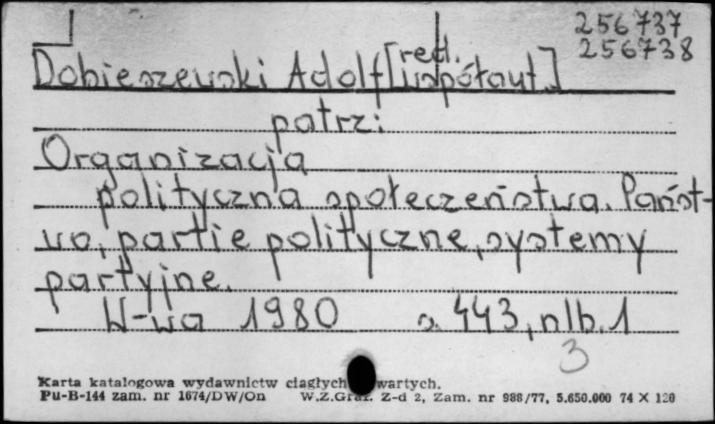 256737
256738
Dobieszewski Adolf [red. współaut.]
patrz:
Organizacja
polityczna społeczeństwa. Państ-
wo, partie polityczne, systemy
partyjne.
W-wa 1980 s. 443, nlb. 1
3
Karta katalogowa wydawnictw ciągłych wartych.
Pu-B-144 zam. nr 1674/DW/On W.Z.Graf. Z-d 2, Zam. nr 988/77, 5.650.000 74 X 120